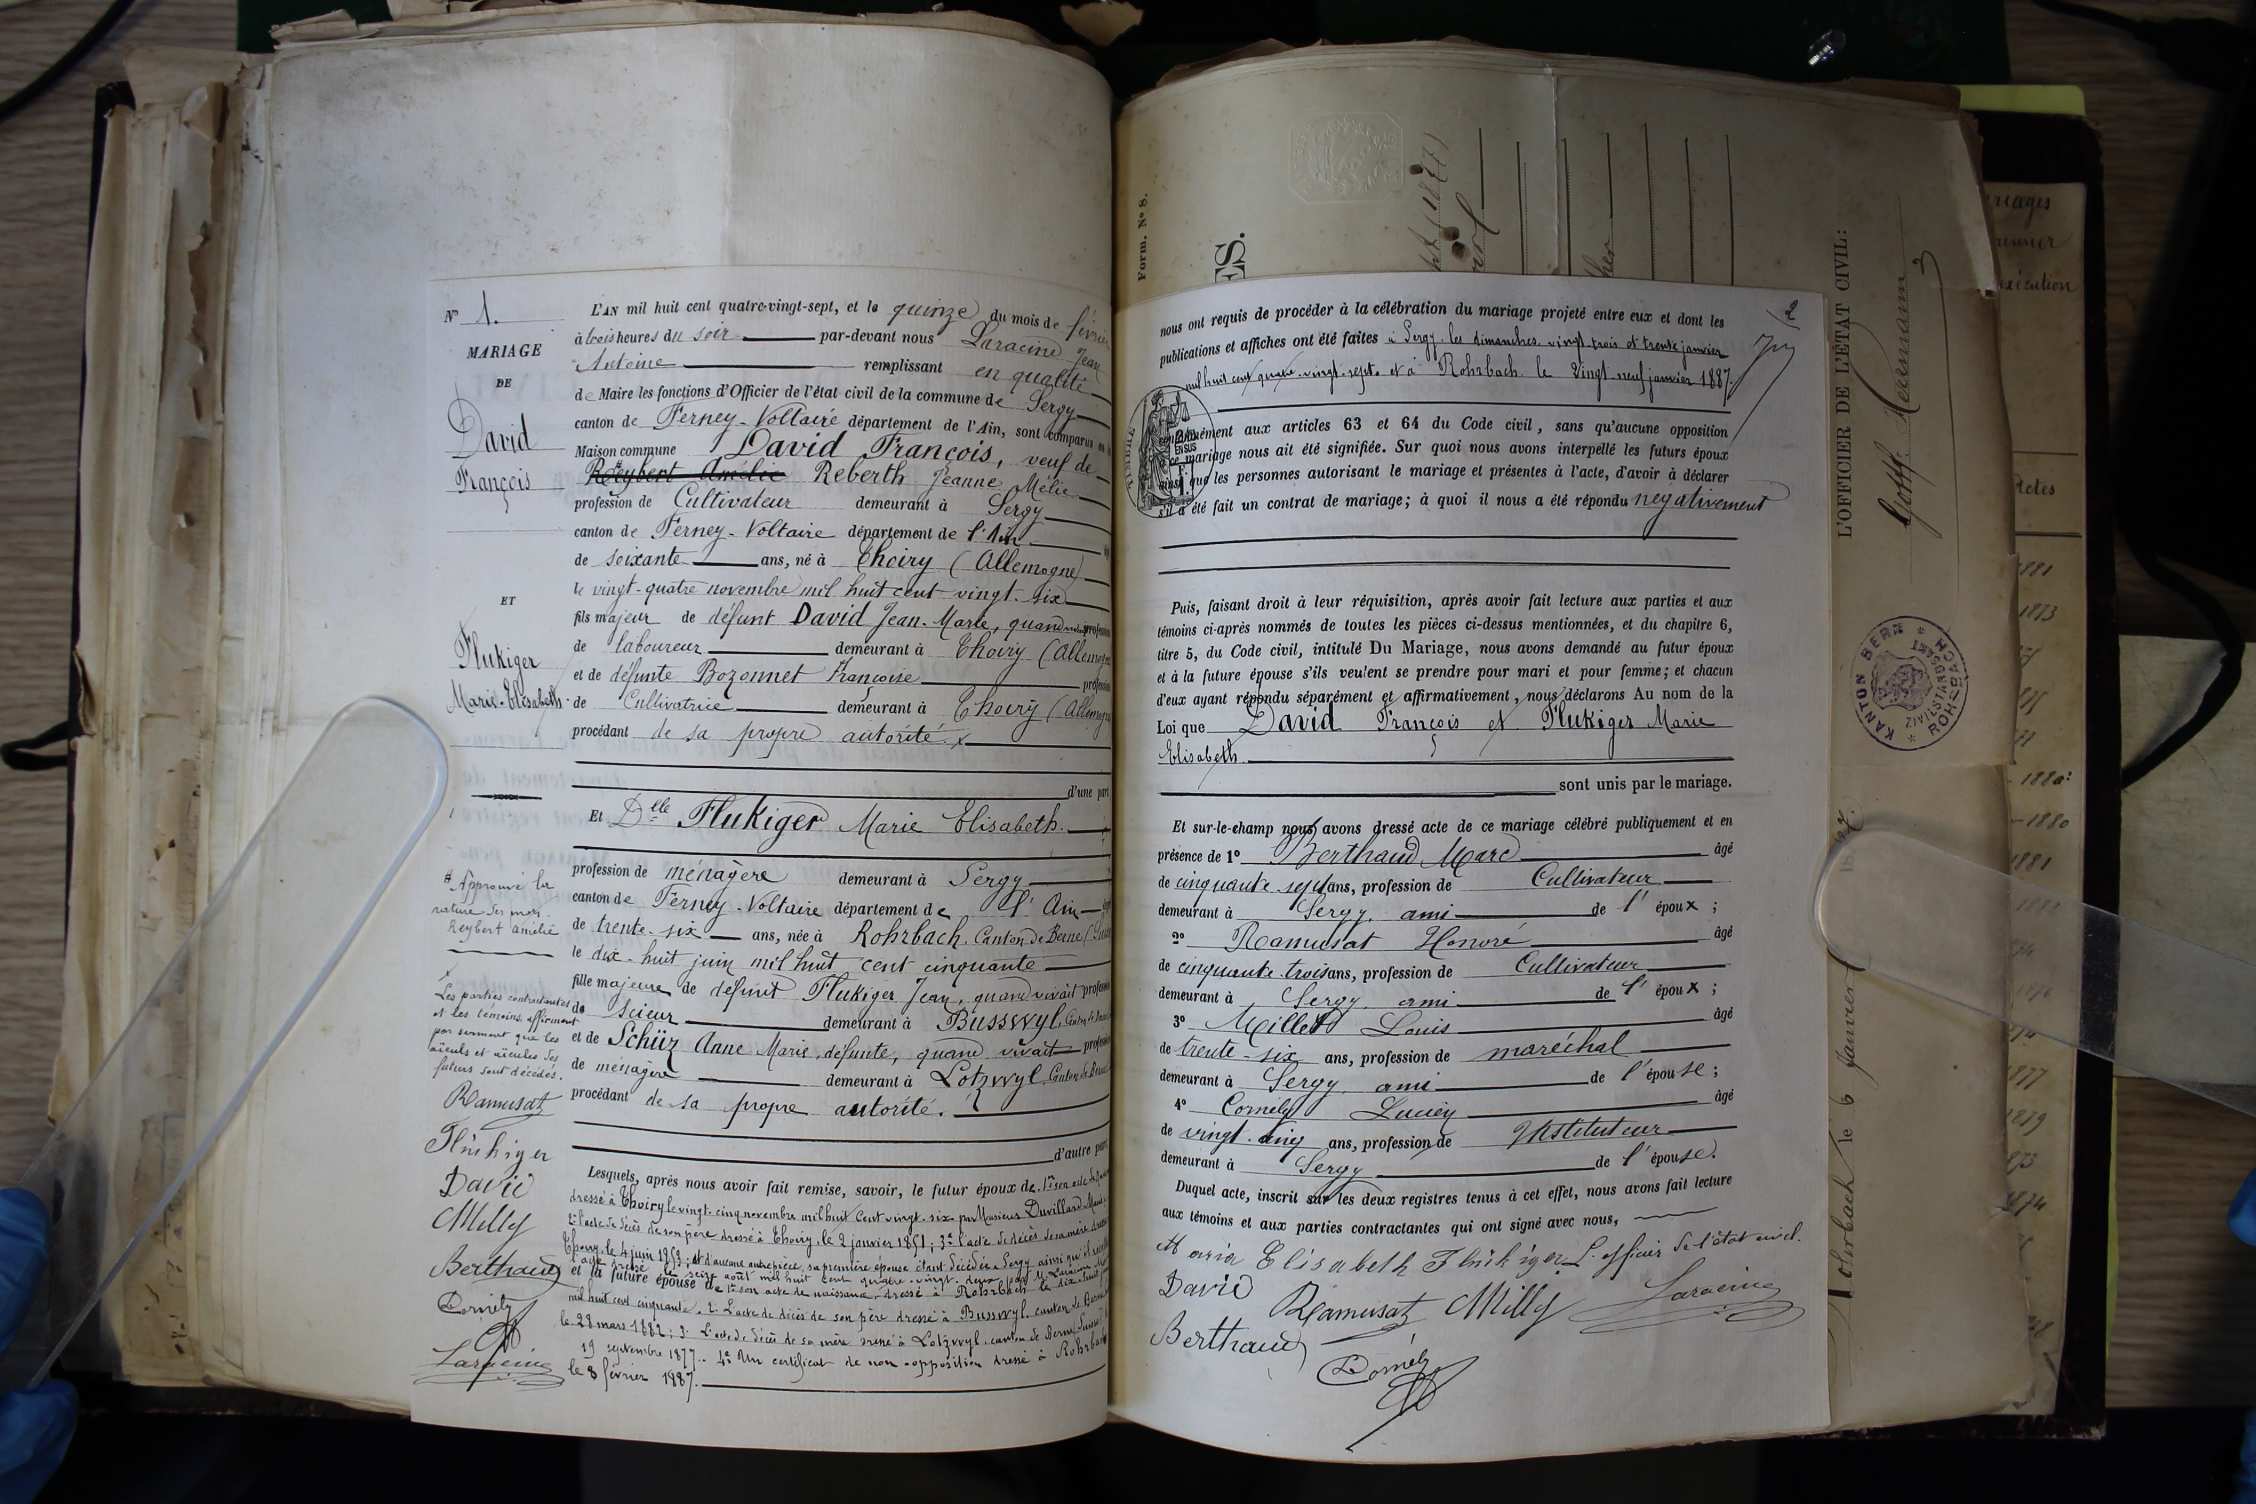 Nº 1.
MARIAGE
DE
David
François
ET
Flukiger
Marie-Elisabeth.
# Approuvé la
rature des mots
Reybert Amélie
x
Les parties contractantes
et les témoins affirment
par serment que les
aïeuls et aïeules des
futurs sont décédés.
Ramusat
Flükiger
David
CMilly
Berthaud
Cornély
Laracine
L'AN mil huit cent quatre-vingt-sept, et le quinze du mois de février
à trois heures du soir par-devant nous Laracine Jean
Antoine remplissant en qualité
de Maire les fonctions d'Officier de l'état civil de la commune de Sergy
canton de Ferney-Voltaire département de l'Ain, sont comparus en la
Maison commune David François, veuf de
Reybert Amélie Reberth Jeanne Mélie
profession de Cultivateur demeurant à Sergy
canton de Ferney-Voltaire département de l'Ain
de soixante ans, né à Thoiry (Allemogne)
le vingt-quatre novembre mil huit cent vingt-six
fils majeur de défunt David Jean-Marie, quand vivait profession
de laboureur demeurant à Thoiry (Allemogne
et de défunte Bozonnet Françoise profession
de Cultivatrice demeurant à Thoiry (Allemogne
procédant de sa propre autorité. x
d'une part
Et Dlle Flukiger Marie Elisabeth.
profession de ménagère demeurant à Sergy
canton de Ferney-Voltaire département de l'Ain
de trente-six ans, née à Rohrbach, Canton de Berne (Suisse
le dix-huit juin mil huit cent cinquante
fille majeure de défunt Flukiger Jean, quand vivait profession
de Scieur demeurant à Busswyl, Canton de Berne
et de Schüz Anne Marie, défunte, quand vivait profession
de ménagère demeurant à Lotzwyl, Canton de Berne
procédant de sa propre autorité.
d'autre part
Lesquels, après nous avoir fait remise, savoir, le futur époux de 1º son acte de naissance
dressé à Thoiry le vingt-cinq novembre mil huit cent vingt-six par Monsieur Duvillard Maire
2º l'acte de décès de son père dressé à Thoiry, le 2 janvier 1851; 3º l'acte de décès de sa mère dressé
Thoiry, le 4 juin 1853; et d'aucune autre pièce, sa première épouse étant décédée à Sergy ainsi qu'il résulte
l'acte dressé le seize août mil huit cent quatre-vingt-deux par M. Laracine
et la future épouse de 1º son acte de naissance, dressé à Rohrbach le dix-huit juin
mil huit cent cinquante, 2º L'acte de décès de son père dressé à Busswyl, canton de Berne
le 28 mars 1882; 3º L'acte de décès de sa mère dressé à Lotzwyl, canton de Berne Suisse
19 septembre 1877. 4º Un certificat de non-opposition dressé à Rohrbach
le 8 février 1887.
Form. Nº 8.
ES.
2
nous ont requis de procéder à la célébration du mariage projeté entre eux et dont les
publications et affiches ont été faites à Sergy les dimanches vingt-trois et trente janvier
mil huit cent quatre-vingt-sept. et à Rohrbach le vingt-neuf janvier 1887.
conformément aux articles 63 et 64 du Code civil, sans qu'aucune opposition
ce mariage nous ait été signifiée. Sur quoi nous avons interpellé les futurs époux
ainsi que les personnes autorisant le mariage et présentes à l'acte, d'avoir à déclarer
s'il a été fait un contrat de mariage; à quoi il nous a été répondu negativement
TIMBRE
EN SUS
Puis, faisant droit à leur réquisition, après avoir fait lecture aux parties et aux
témoins ci-après nommés de toutes les pièces ci-dessus mentionnées, et du chapitre 6,
titre 5, du Code civil, intitulé Du Mariage, nous avons demandé au futur époux
et à la future épouse s'ils veulent se prendre pour mari et pour femme; et chacun
d'eux ayant répondu séparément et affirmativement, nous déclarons Au nom de la
Loi que David François et Flukiger Marie
Elisabeth
sont unis par le mariage.
Et sur-le-champ nous avons dressé acte de ce mariage célébré publiquement et en
présence de 1º Berthaud Marc âgé
de cinquante-sept ans, profession de Cultivateur
demeurant à Sergy, ami de l'époux;
2º Ramusat Honoré âgé
de cinquante-trois ans, profession de Cultivateur
demeurant à Sergy, ami de l'époux;
3º Millet Louis âgé
de trente-six ans, profession de maréchal
demeurant à Sergy, ami de l'épouse;
4º Cornély Lucien âgé
de vingt-cinq ans, profession de Instituteur
demeurant à Sergy de l'épouse.
Duquel acte, inscrit sur les deux registres tenus à cet effet, nous avons fait lecture
aux témoins et aux parties contractantes qui ont signé avec nous,
Maria Elisabeth Flükiger L'officier de l'état civil.
David Ramusat CMilly Laracine
Berthaud
Cornély
L'OFFICIER DE L'ÉTAT CIVIL:
Gottf. Hermann
KANTON BERN * ROHRBACH *
ZIVILSTANDSAMT
Rohrbach le 6 Janvier
1881
1873
1880
1881
1877
1879
1874